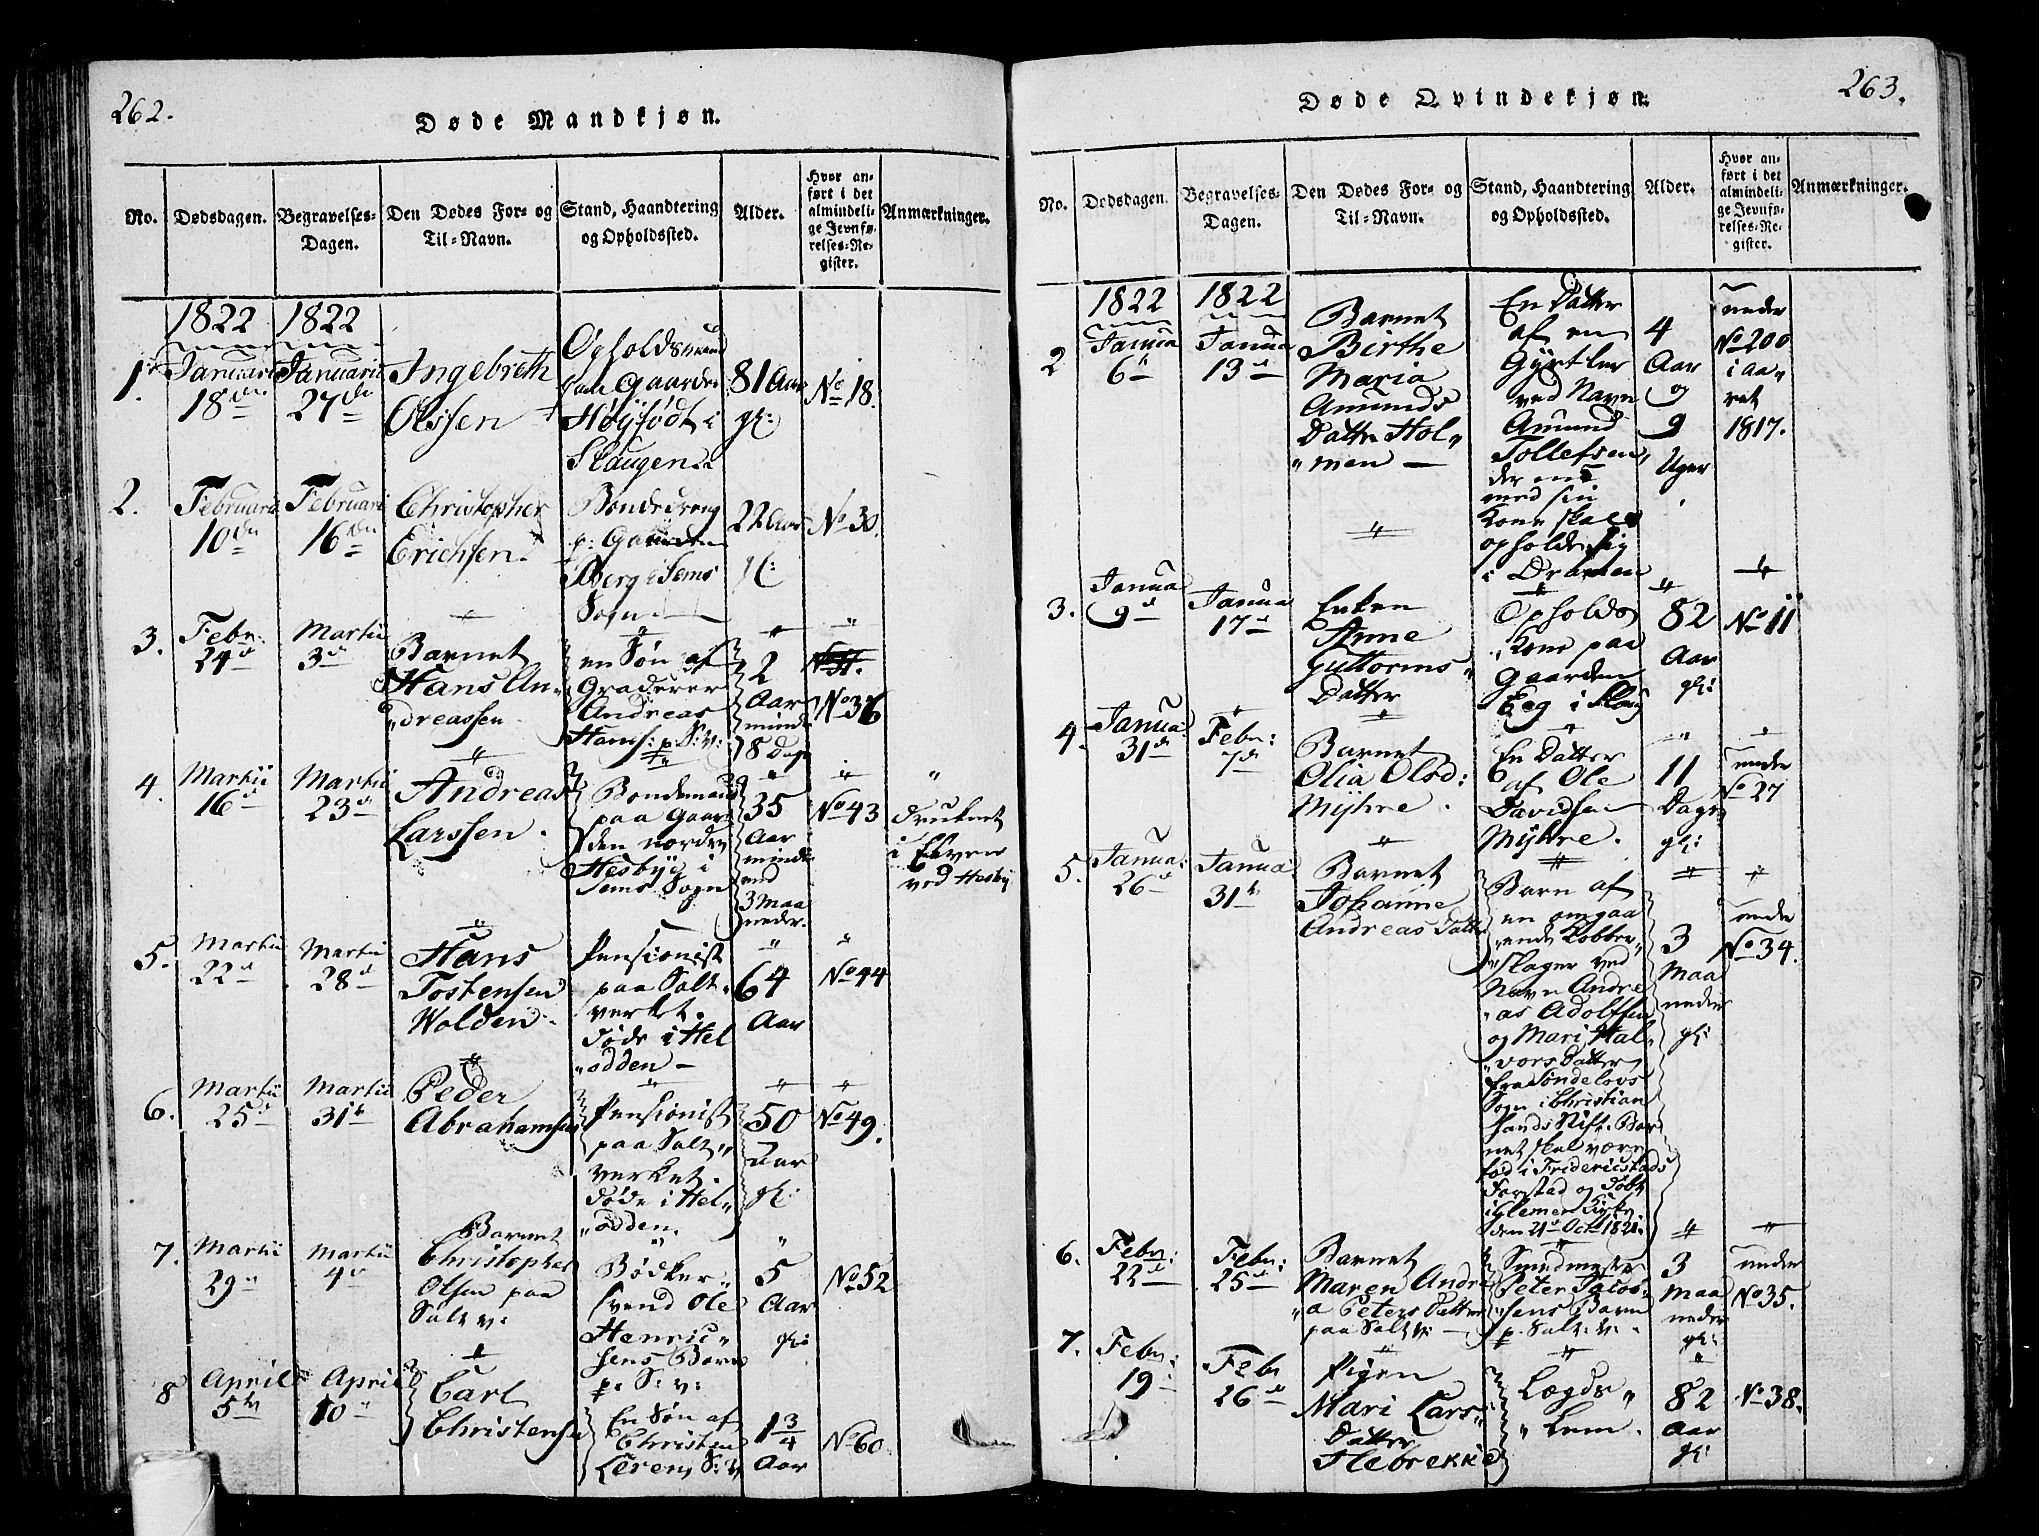 262.
Døde Mandkjøn.
No.
Dødsdagen.
Begravelses-
Dagen.
Den Dødes For- og
Til-Navn.
Stand, Haandtering
og Opholdssted.
Alder.
Hvor an-
ført i det
almindeli-
ge Jevnfø-
relses-Re-
gister.
Anmærkninger.
1822
1822
1.
Januarii
18de
Januarii
27de
Ingebreth
Olssen
Opholdsmand
paa Gaarden
Høyjødt i
Slaugen
81 Aar
gl:
No 18.
2.
Februarii
10de
Februarii
16de
Christopher
Erichsen
Bondedreng
p: Gaarden
Berg i Sems
Sogn
22 Aar
gl:
No 30.
3.
Febr:
24d
Martii
3d
Barnet
Hans An-
dreassen
en Søn af
Graderer
Andreas
Hans: p. S: v:
2
Aar
minde
18 Dage
No 36
4.
Martii
16d
Martii
23d
Andreas
Larssen.
Bondemand
paa Gaar-
den nordre
Hesbye i
Sems Sogn
35
Aar
minde
ved
3 Maa
neder.
No 43
druknet
i Elven
ved Hesby
5.
Martii
22d
Martii
28d
Hans
Tostensen
Wolden.
Pensionist
paa Salt-
verket.
døde i Hel
"odden -
64
Aar
No 44
6.
Martii
25d
Martii
31te
Peder
Abrahamsen
Pensionist
paa Salt"
verket.
døde i Hel"
"odden.
50
Aar
gl:
No 49.
7.
Martii
29d
Martii
4d
Barnet
Christopher
Olsen paa
Salt v:
Bødker"
svend Ole
Henric"
sens Barn
p. S: v:
5
Aar
gl:
No 52
8
April
5te
April
10
Carl
Christensen
En Søn af
Christen
Lerens S: v
1 3/4
Aar
No 60.
263.
Døde Qvindekjøn.
No.
Dødsdagen.
Begravelses-
Dagen.
Den Dødes For- og
Til-Navn.
Stand, Haandtering
og Opholdssted.
Alder.
Hvor an-
ført i det
almindeli-
ge Jevnfø-
relses-Re-
gister.
Anmærkninger.
1822
1822
2
Janua
6te
Janua
13d
Barnet
Birthe
Maria
Amunds
Datter Hol"
"men -
En Datter
af en
Gyrtler
ved Navn
Amund
Tollefsen,
der
med sin
Kone skal
opholde sig
i Dramen
4
Aar
og
9
Uger
under
No 200
i aa-
ret
1817.
3.
Janua
9d
Janua
17d
Enken
Anne
Guttorms"
Datter
Opholds
Kone paa
Gaarden
Eeg i Slaug
82
Aar
gl:
No 11
4.
Janua:
31d
Febr:
7d
Barnet
Olia Olsd:
Myhre.
En Datter
af Ole
Davidsen
Myhre.
11
Dage
gl:
under
No 27
5.
Janua:
26d
Janua
31te
Barnet
Johanne
Andreas Datter
Barn af
en omgaa
"ende Kobber"
"slager ved
Navn Andre
as Adolfsen
og Mari Hal"
"vors Datter,
fra Søndelovs
Sogn i Christian
sands Stift. Bar
net skal være
fød i Fridericstads
Forstad og døbt
i Glemen Kirke
den 21d Octr 1821.
3
Maa
neder
gl:
under
No 34.
6.
Febr:
22d
Febr:
25d
Barnet
Maren Andre
"a Peters Datter
paa Salt v: -
Smedmester
Peter Jacob-
"sens Barn
p. Salt: v: .
3
Maa
neder
gl:
under
No 35.
7.
Febr:
19
Febr
26d
Pigen
Mari Lars"
Datter
Flebrekke
Lægds"
"Lem.
82
Aar
gl:
No 38.